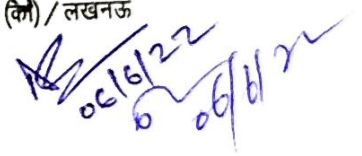 (वि0) / लखनऊ
06/6/22
06/6/22